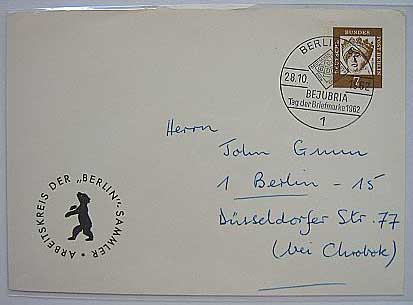 BERLIN
28.10.
1962
BEJUBRIA
Tag der Briefmarke 1962
1
Herrn
John Gunn
1 Berlin - 15
Düsseldorfer Str. 77
(bei Chrobok)
ARBEITSKREIS DER „BERLIN"-SAMMLER •